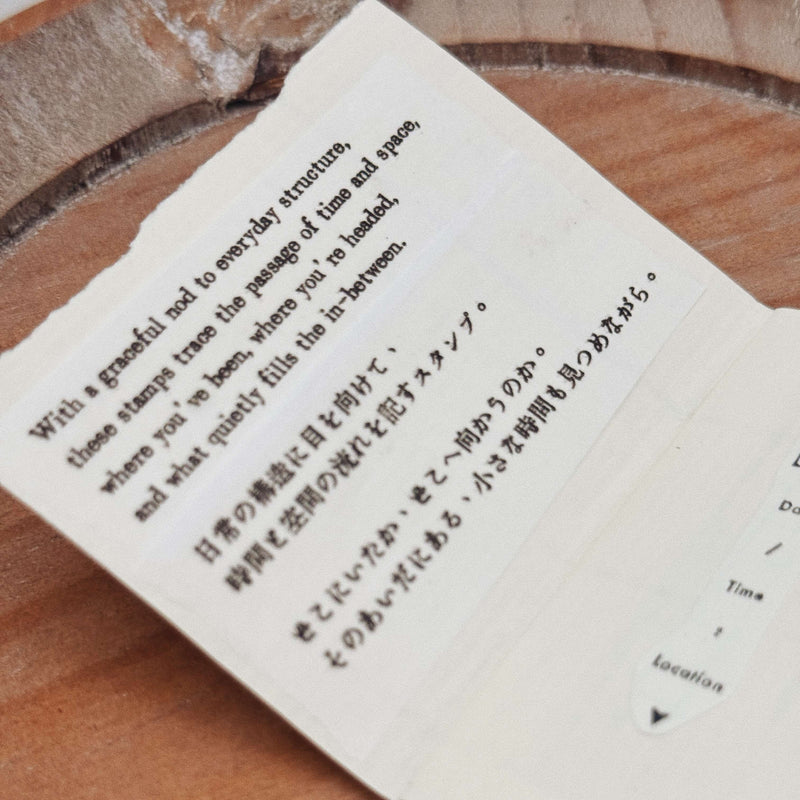 With a graceful nod to everyday structure,
these stamps trace the passage of time and space,
where you've been, where you're headed,
and what quietly fills the in-between.
日常の構造に目を向けて、
時間と空間の流れを記すスタンプ。
そこにいたか、そこへ向かうのか。
そのあいだにある、小さな時間も見つめながら。
/
Time
:
Location